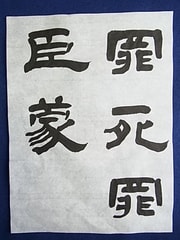 罪死罪
臣蒙